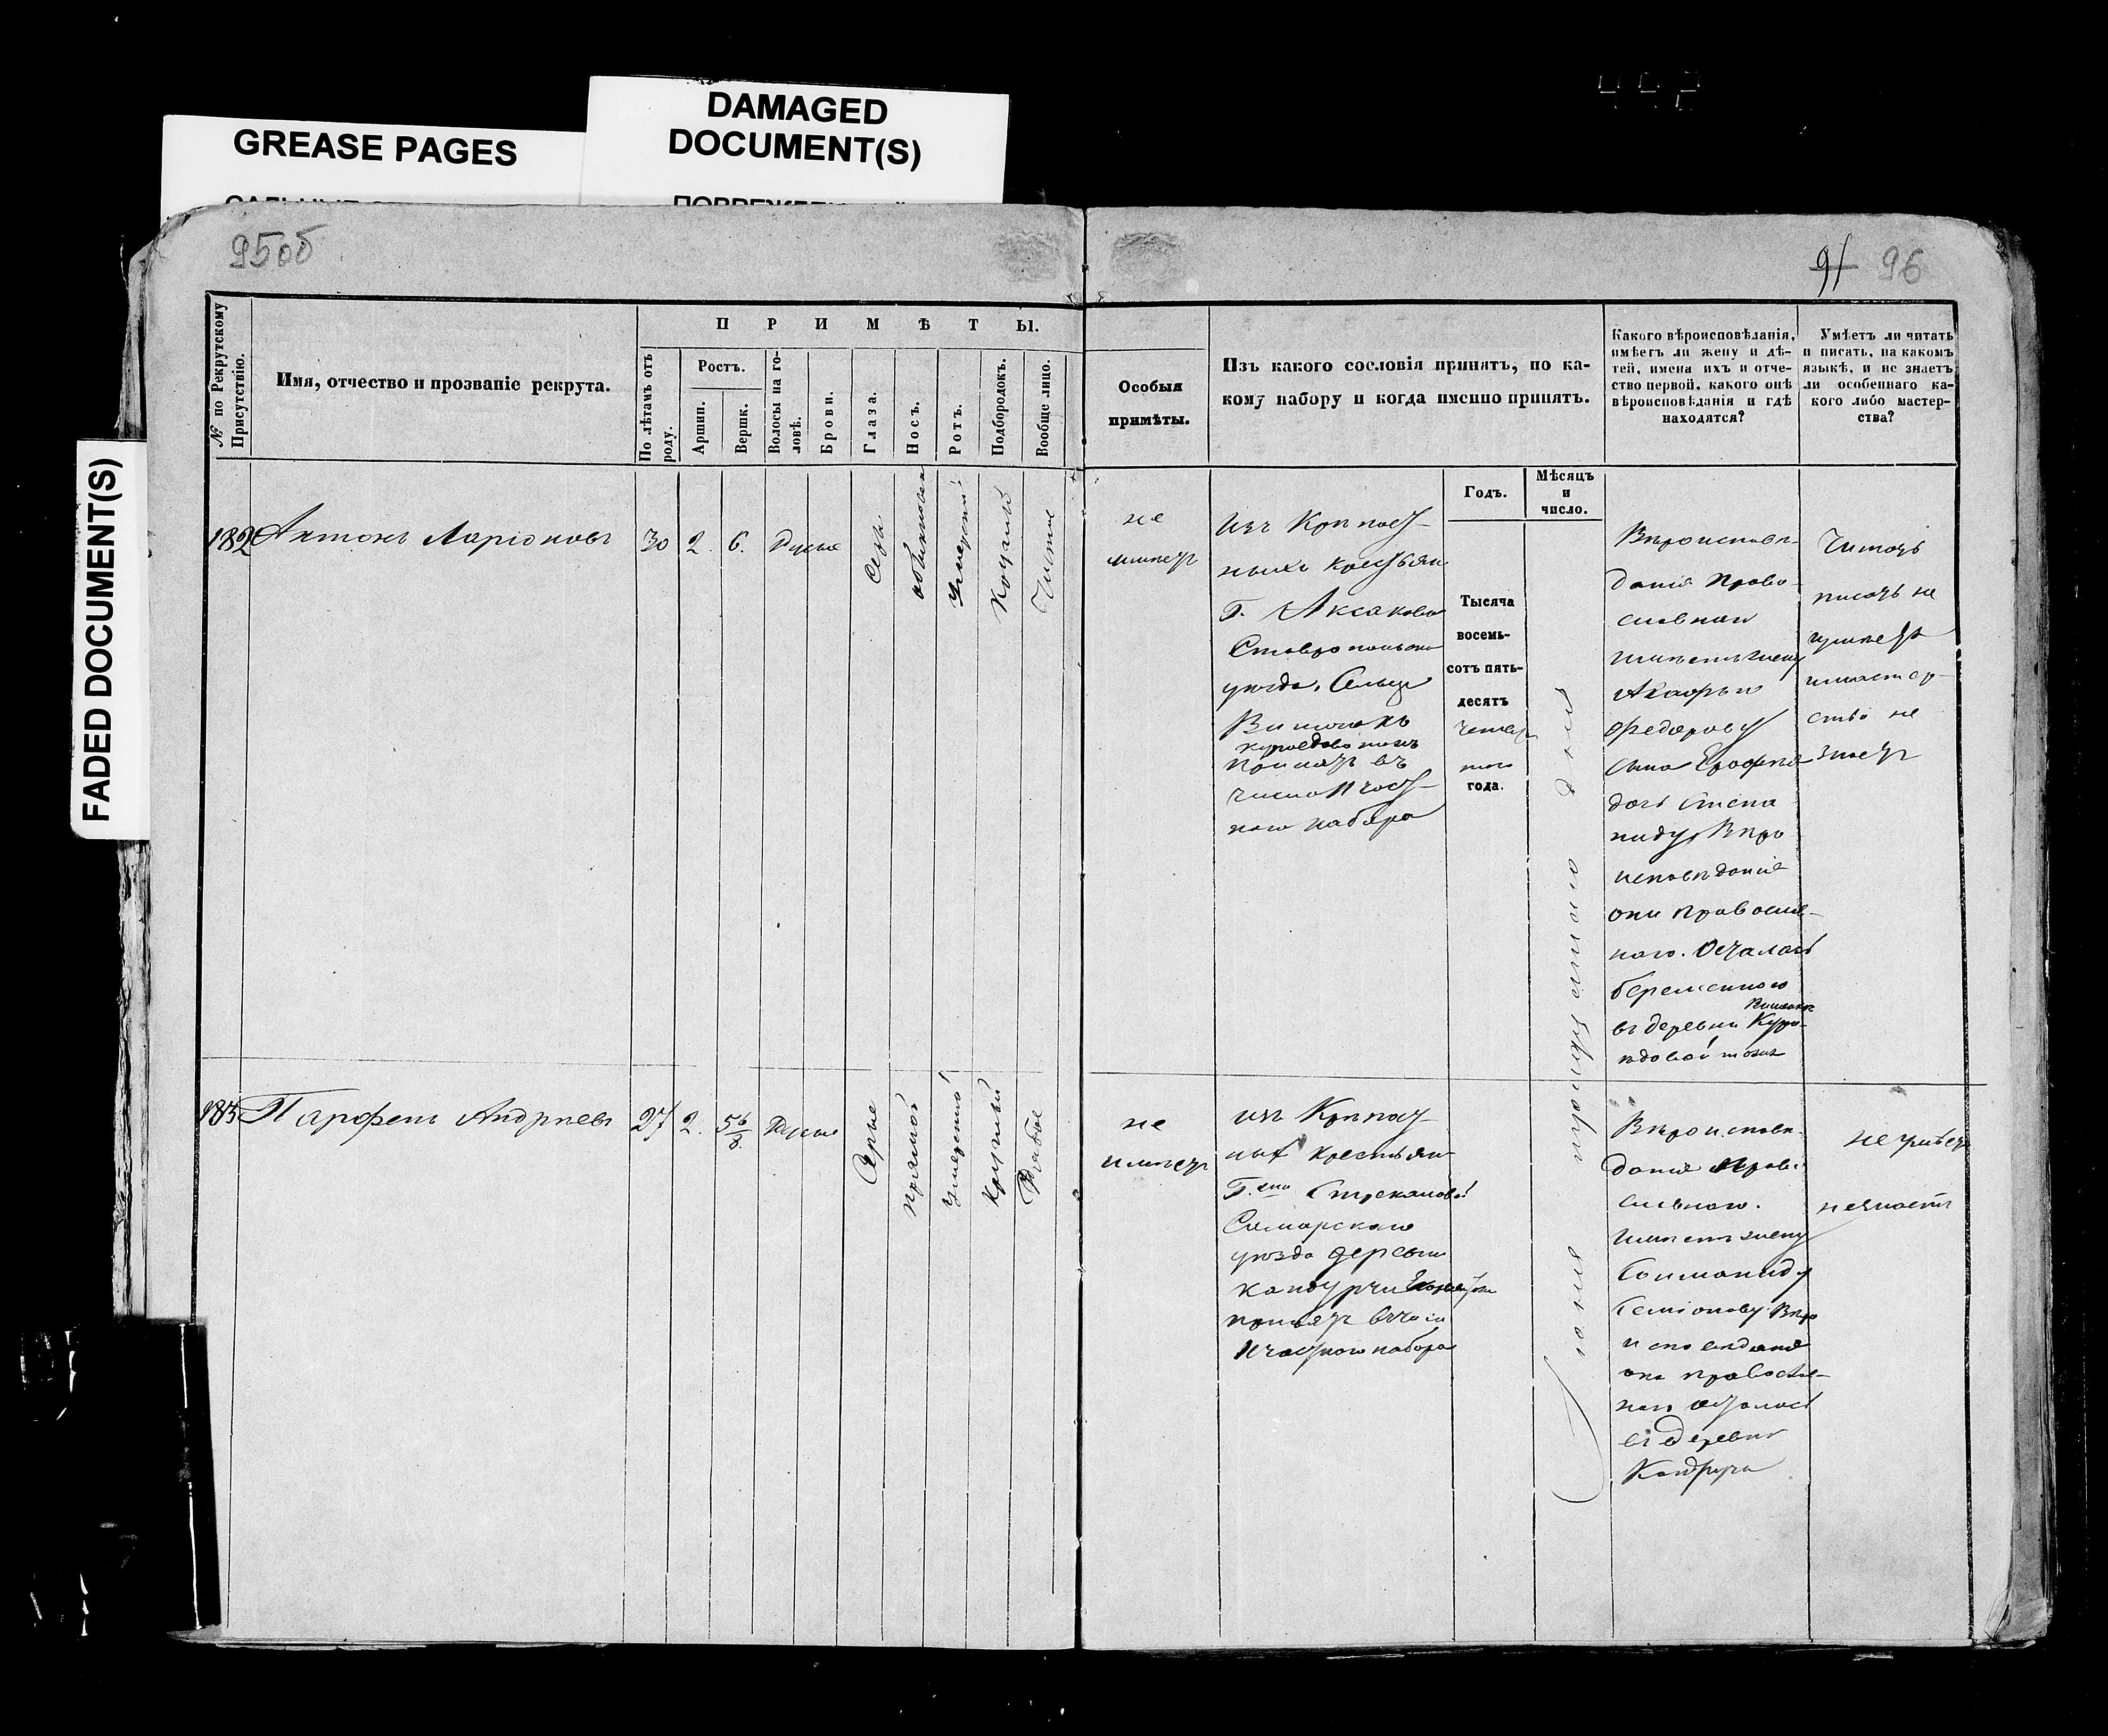 GREASE PAGES
DAMAGED
DOCUMENT(S)
FADED DOCUMENT(S)
95об
91 96
№ по Рекрутскому
Присутствію.
Имя, отчество и прозваніе рекрута.
П Р И М Ѣ Т Ы.
По лѣтамъ отъ
роду.
Ростъ.
Аршин.
Вершк.
Волосы на го-
ловѣ.
Брови.
Глаза.
Носъ.
Ротъ.
Подбородокъ.
Вообще лицо.
Особыя
примѣты.
Изъ какого сословія принятъ, по ка-
кому набору и когда именно принятъ.
Какого вѣроисповѣданія,
имѣетъ ли жену и дѣ-
тей, имена ихъ и отче-
ство первой, какого онѣ
вѣроисповѣданія и гдѣ
находятся?
Умѣетъ ли читать
и писать, на какомъ
языкѣ, и не знаетъ
ли особеннаго ка-
кого либо мастер-
ства?
Годъ.
Мѣсяцъ
и
число.
182
Антонъ Ларіоновъ
30
2.
6.
Русые
обыкновен
Чистое
не
имѣетъ
изъ Крѣпост-
ныхъ крестьян
Г. Аксакова
Ставропольска
уѣзда,
принятъ въ
число
наго набора
Тысяча
восемь-
сотъ пять-
десятъ
четвер
таго
года.
Іюня тридцатаго дня
Вѣроисповѣ-
данія Право-
славнаго
имѣетъ жену
Агафью
Федорову
сына Ерофея
дочь Степа
ниду, Вѣро
исповѣданія
они православ-
наго. Осталась
беременною
въ деревни Куро-
ѣдовой тожъ
Читать
писать не
умѣетъ
и мастер-
ство не
знаетъ
183
Парфенъ Андрѣевъ
27
2.
5 6/8
Русые
Серые
прямой
Умеренной
Круглый
Рябое
не
имѣетъ
изъ Крѣпост-
ных крестьян
Самарскаго
уѣзда деревни
принятъ в число
набора
Вѣроисповѣ-
данія Право-
славнаго.
имѣетъ жену
Соломаниду
Семіонову Вѣро
исповѣданія
она православ-
наго осталась
въ деревни
не умѣетъ
не знаетъ